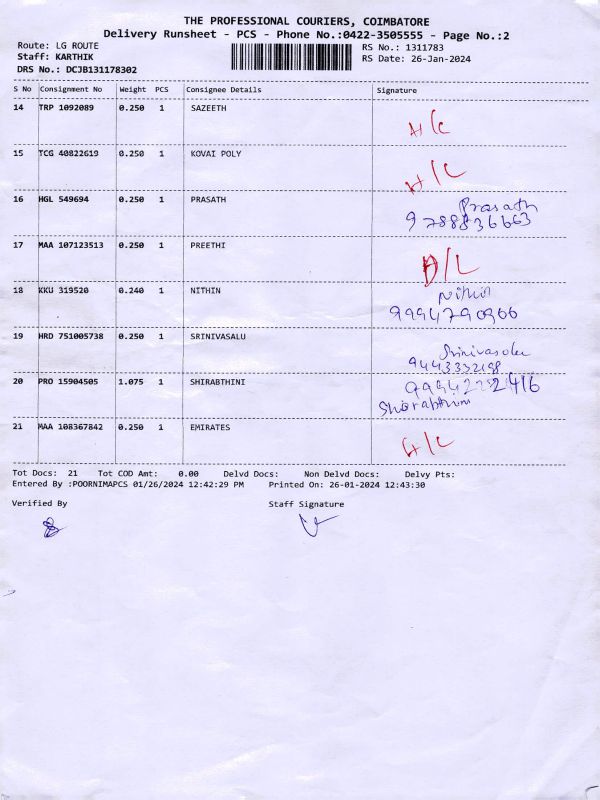 THE PROFESSIONAL COURIERS, COIMBATORE
Delivery Runsheet - PCS - Phone No.:0422-3505555 - Page No.:2
Route: LG ROUTE RS No.: 1311783
Staff: KARTHIK RS Date: 26-Jan-2024
DRS No.: DCJB131178302
S No Consignment No Weight PCS Consignee Details Signature
14 TRP 1092089 0.250 1 SAZEETH
15 TCG 40822619 0.250 1 KOVAI POLY
16 HGL 549694 0.250 1 PRASATH Prasath
9788836663
17 MAA 107123513 0.250 1 PREETHI D/L
18 KKU 319520 0.240 1 NITHIN Nithin
9994790966
19 HRD 751005738 0.250 1 SRINIVASALU Srinivasalu
9443332198
20 PRO 15904505 1.075 1 SHIRABTHINI
Shirabthini
21 MAA 108367842 0.250 1 EMIRATES
Tot Docs: 21 Tot COD Amt: 0.00 Delvd Docs: Non Delvd Docs: Delvy Pts:
Entered By :POORNIMAPCS 01/26/2024 12:42:29 PM Printed On: 26-01-2024 12:43:30
Verified By Staff Signature